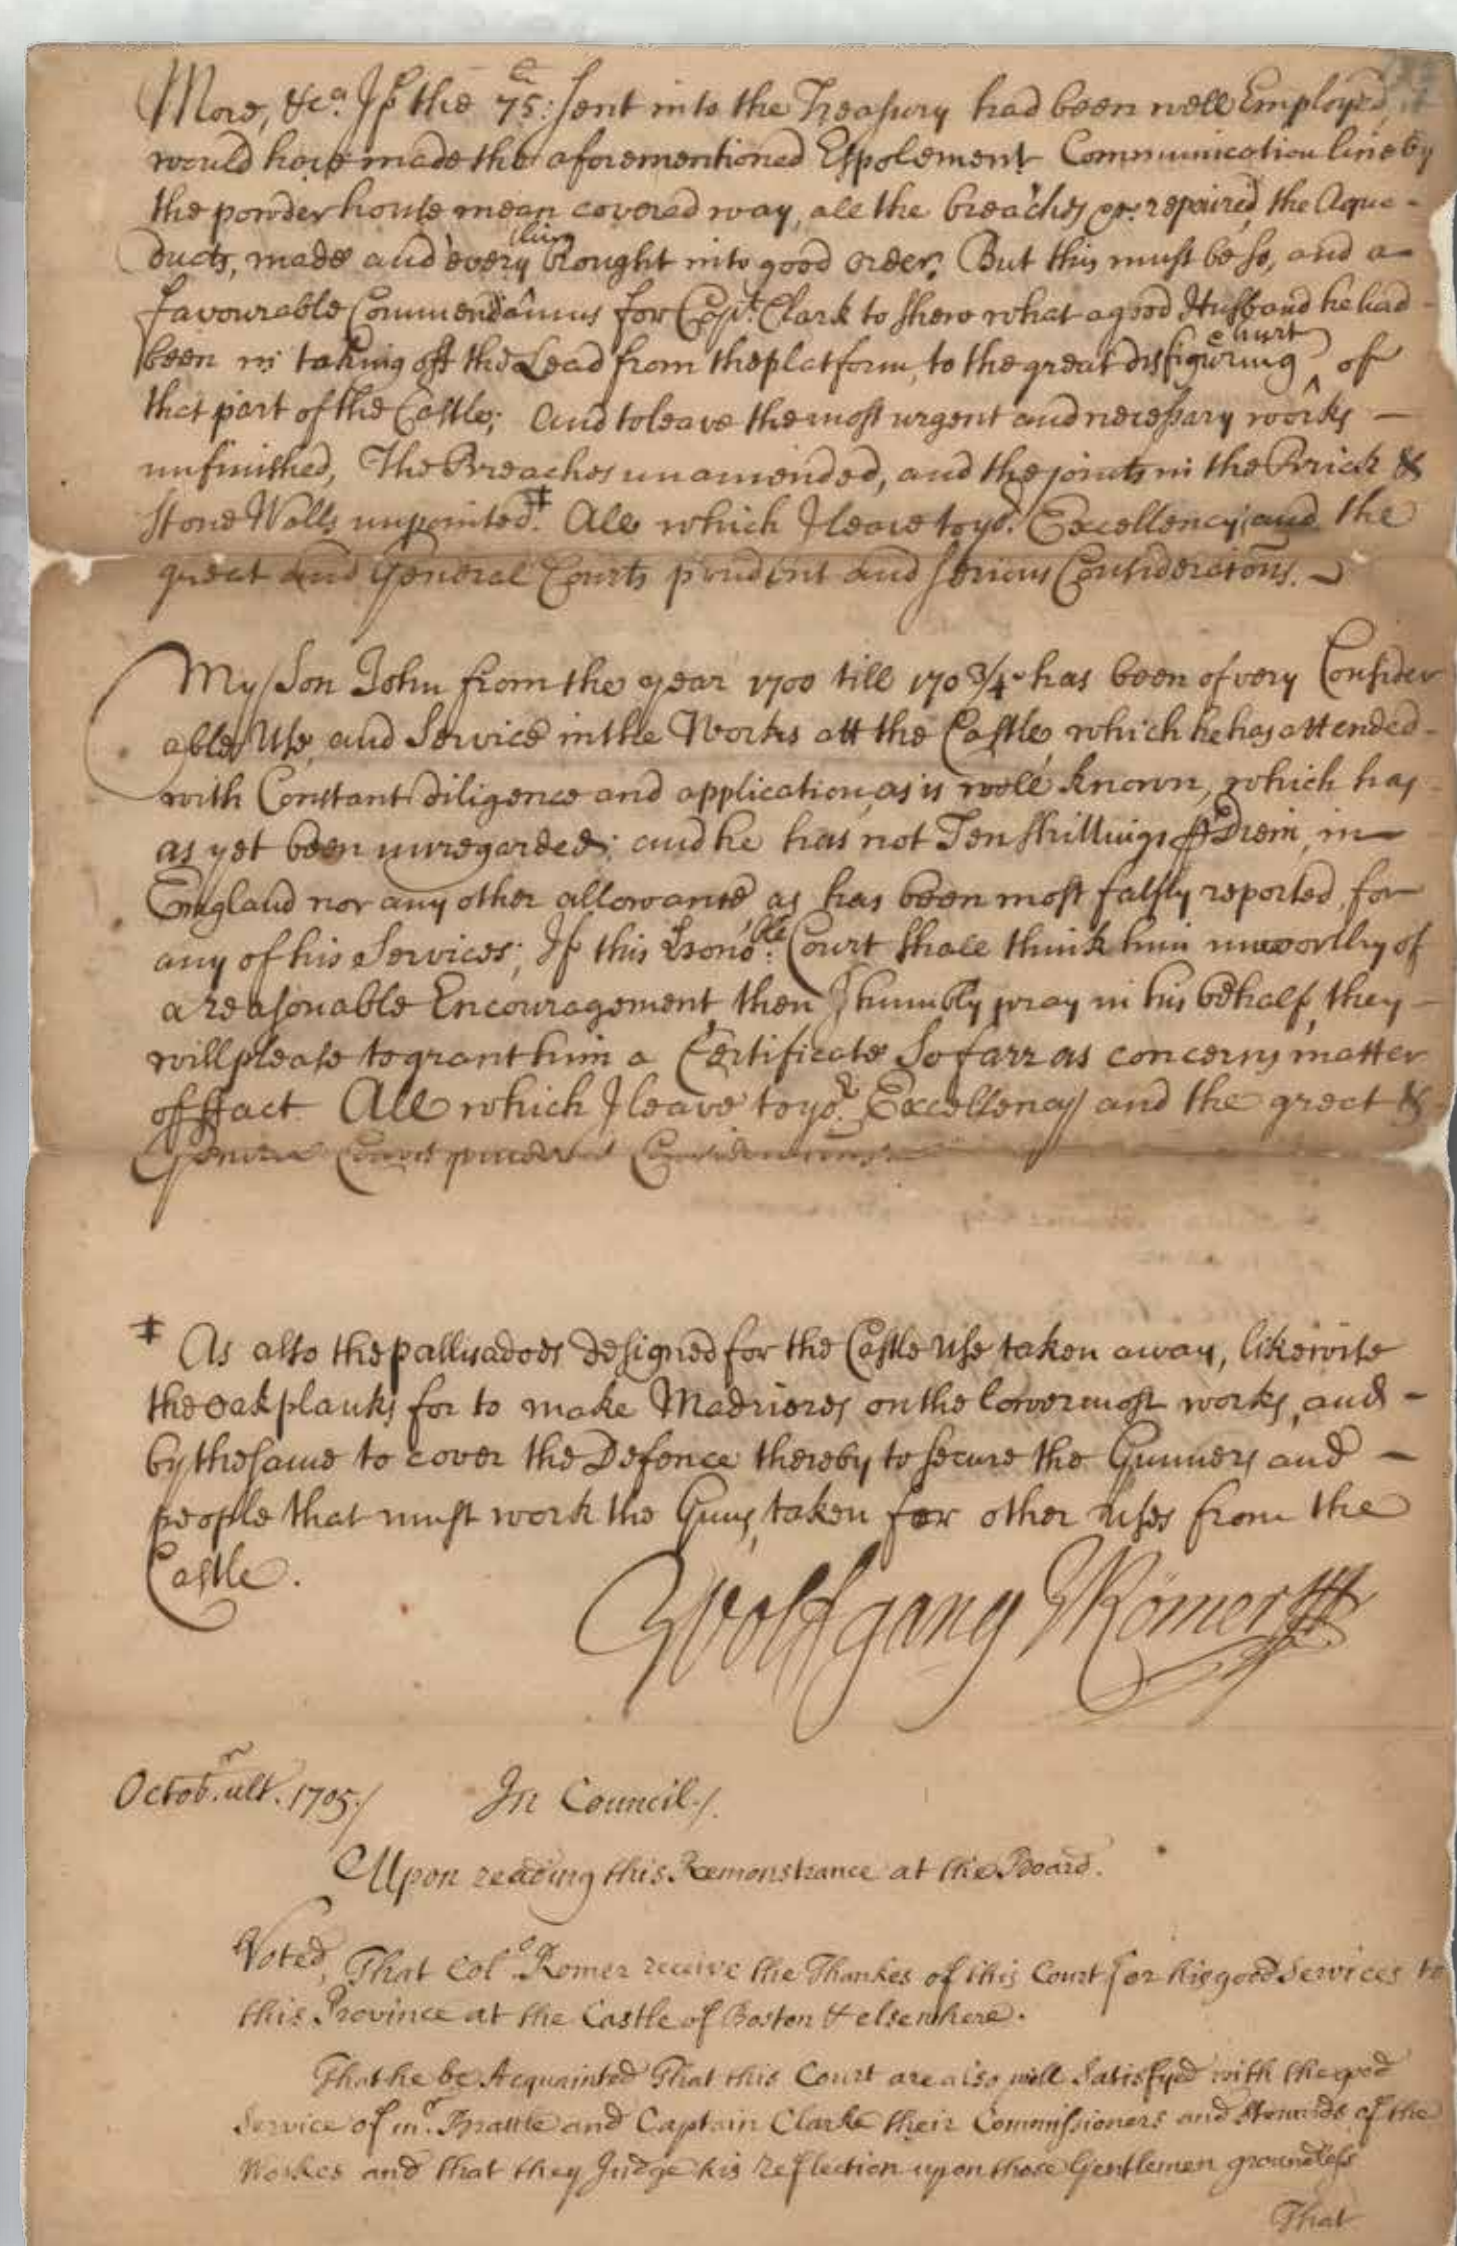 More, &ca. If the 75:£ sent into the Treasury had been well Employed, it
would have made the aforementioned Espolement Communication line by
the powder house mean covered way, all the breaches repaired, the Aque-
ducts, made and every thing brought into good order. But this must be so, and a
favourable Commendamus for Capt. Clark to shew what a good Husband he had
been in taking off the Lead from the platform, to the great disfiguring ^ hurt of
that part of the Castle; And to leave the most urgent and necessary works —
unfinished, The Breaches unamended, and the joints in the Brick &
Stone Walls unpointed.‡ All which I leave to yor. Excellency and the
great and General Courts prudent and serious Considerations.
My Son John from the year 1700 till 1703/4 has been of very Consider
able Use, and Service in the Works att the Castle, which he has attended -
with Constant diligence and application, as is well known, which has
as yet been unregarded; and he has not Ten shillings ⅌ Diem, in —
England nor any other allowance, as has been most falsly reported, for
any of his Services; If this Honoble: Court shall think him unworthy of
a reasonable Encouragement, then I humbly pray in his behalf, they —
will please to grant him a Certificate So farr as concerns matter
of ffact. All which I leave to yor. Excellency and the great &
General Courts prudent Considerations.
‡ As also the pallisadoes designed for the Castle Use taken away, likewise
the oak planks for to make Madrieres on the lowermost works, and -
by the same to cover the Defence thereby to secure the Gunners and —
people that must work the Guns, taken for other Uses from the
Castle.
Wolfgang Römer
Octobr. ult. 1705./ In Council./.
Upon reading this Remonstrance at the Board.
Voted, That Colo. Romer receive the Thankes of this Court for his good Services to
this Province at the Castle of Boston & elsewhere.
That he be Acquainted That this Court are also well Satisfyed with the good
Service of mr. Brattle and Captain Clarke their Commissioners and Stewards of the
Workes and that they Judge his reflection upon those Gentlemen groundless
That